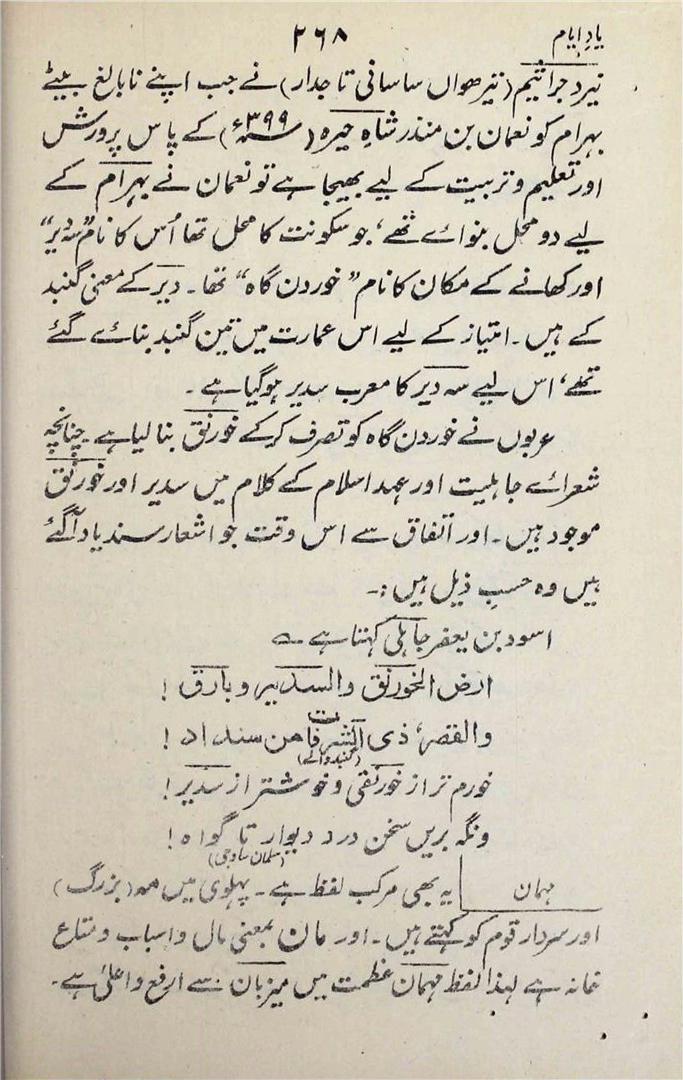 یادِ ایام
۳۶۸
یزدجرد اثیم (تیرھواں ساسانی تاجدار) نے جب اپنے نابالغ بیٹے
بہرام کو نعمان بن منذر شاہِ حیرہ (سنہ ۳۹۹ء) کے پاس پرورش
اور تعلیم و تربیت کے لیے بھیجا ہے تو نعمان نے بہرام کے
لیے دو محل بنوائے تھے، جو سکونت کا محل تھا اُس کا نام "سہ دیر"
اور کھانے کے مکان کا نام "خوردن گاہ" تھا۔ دیر کے معنی گنبد
کے ہیں۔ امتیاز کے لیے اس عمارت میں تین گنبد بنائے گئے
تھے، اس لیے سہ دیر کا معرب سدیر ہوگیا ہے۔
عربوں نے خوردن گاہ کو تصرف کرکے خورنق بنا لیا ہے۔ چنانچہ
شعرائے جاہلیت اور عہد اسلام کے کلام میں سدیر اور خورنق
موجود ہیں۔ اور اتفاق سے اس وقت جو اشعار سند یاد آگئے
ہیں وہ حسبِ ذیل ہیں :۔
اسود بن یعفر جاہلی کہتا ہے ؎
ارض الخورنق والسدیر و بارق !
والقصر، ذی الشرفات من سنداد !
(گنبد والے)
خورم تر از خورنقی و خوشتر از سدیر !
ونگہ بریں سخن در و دیوار تا گواہ !
(سلمان ساوجی)
مہمان | یہ بھی مرکب لفظ ہے۔ پہلوی میں مہ (بزرگ)
اور سردار قوم کو کہتے ہیں۔ اور مان بمعنی مال و اسباب و متاع
خانہ ہے لہذا لفظ مہمان عظمت میں میزبان سے ارفع و اعلیٰ ہے۔